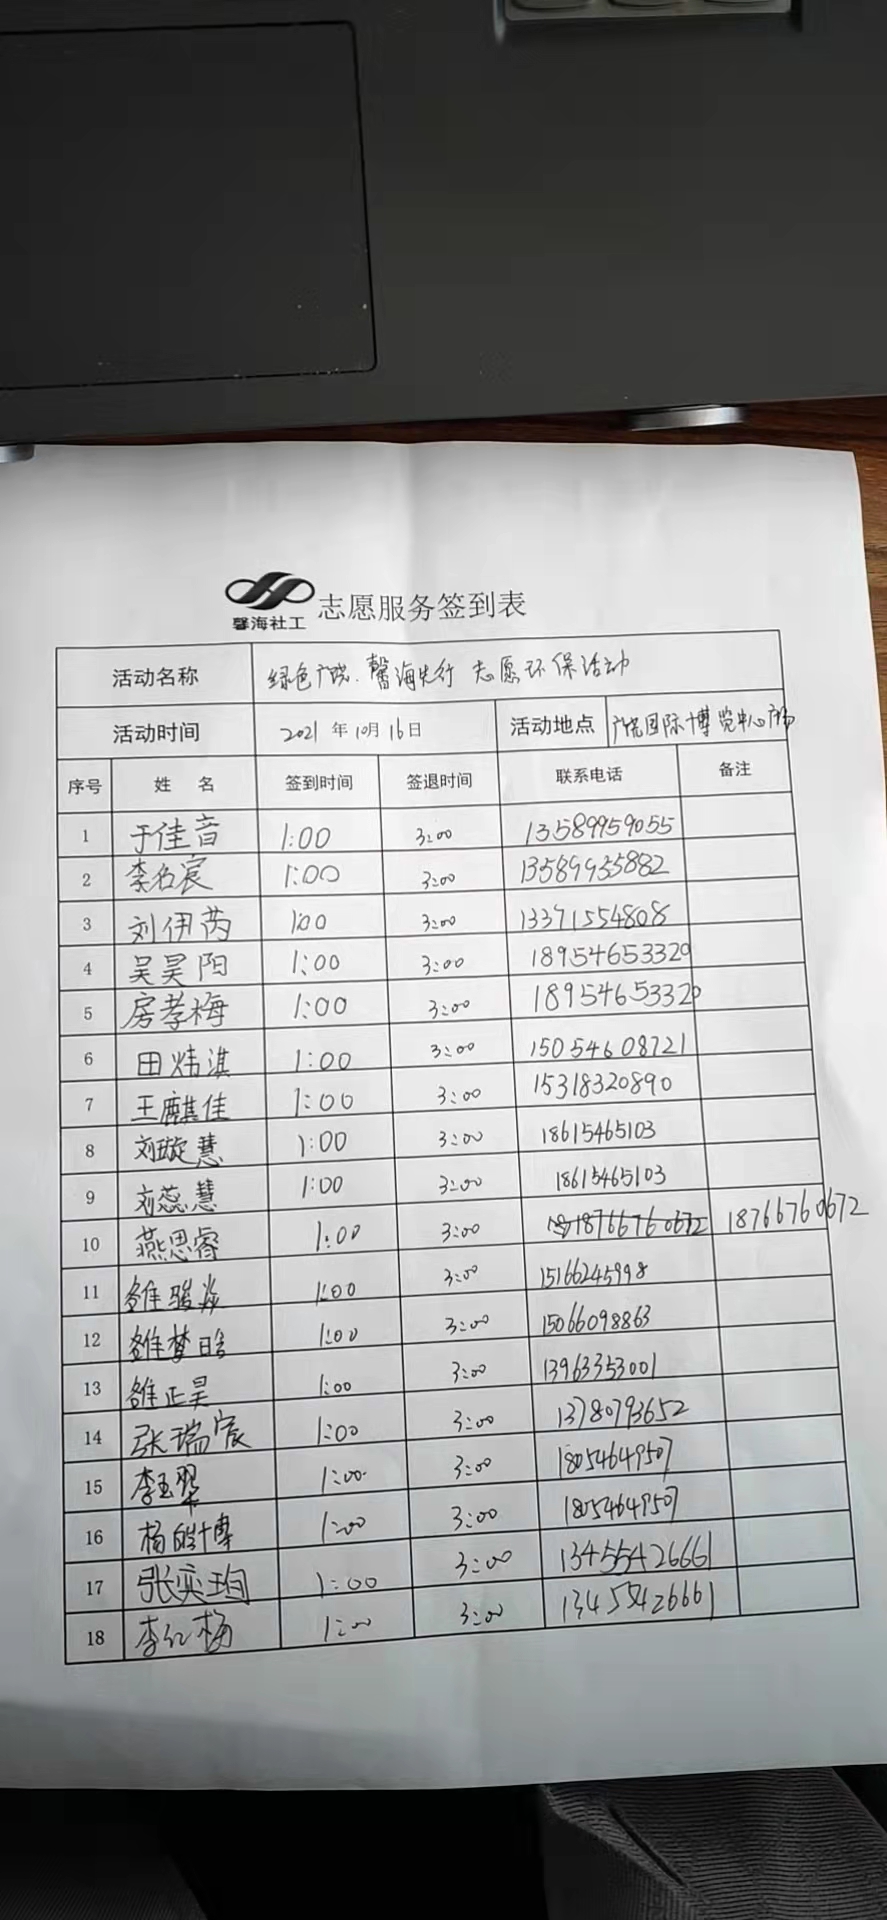 馨海社工 志愿服务签到表
活动名称 绿色广饶.馨海先行 志愿环保活动
活动时间 2021年10月16日 活动地点 广饶国际博览中心广场
序号 姓 名 签到时间 签退时间 联系电话 备注
1 于佳音 1:00 3:00 13589959055
2 李名宸 1:00 3:00 13589955882
3 刘伊芮 1:00 3:00 13371554808
4 吴昊阳 1:00 3:00 18954653320
5 房孝梅 1:00 3:00 18954653320
6 田炜淇 1:00 3:00 15054608721
7 王麒佳 1:00 3:00 15318320890
8 刘璇慧 1:00 3:00 18615465103
9 刘蕊慧 1:00 3:00 18615465103
10 燕思睿 1:00 3:00 18766760672 18766760672
11 雒骏焱 1:00 3:00 15166245998
12 雒梦晗 1:00 3:00 15066098863
13 雒正昊 1:00 3:00 13963353001
14 张瑞宸 1:00 3:00 13780793652
15 李玉翠 1:00 3:00 18054649507
16 杨皓博 1:00 3:00 18054649507
17 张奕珣 1:00 3:00 13455426661
18 李红梅 1:00 3:00 13455426661